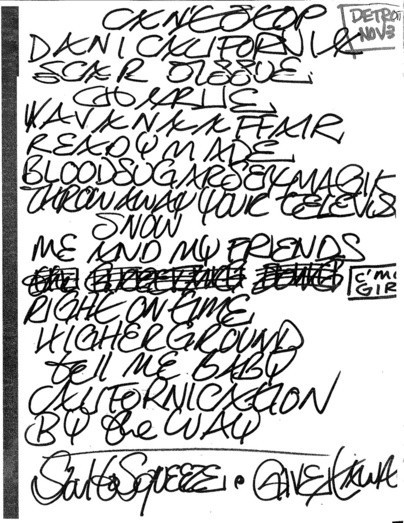 CAN'T STOP
DETROIT
NOV 3
DANI CALIFORNIA
SCAR TISSUE
CHARLIE
HAVANA AFFAIR
READYMADE
BLOODSUGARSEXMAGIK
THROW AWAY YOUR TELEVIS
SNOW
ME AND MY FRIENDS
C'MO
GIR
RIGHT ON TIME
HIGHER GROUND
tell ME BABY
CALIFORNICATION
BY the WAY
Soul to SQUEEZE • GIVE it AWA